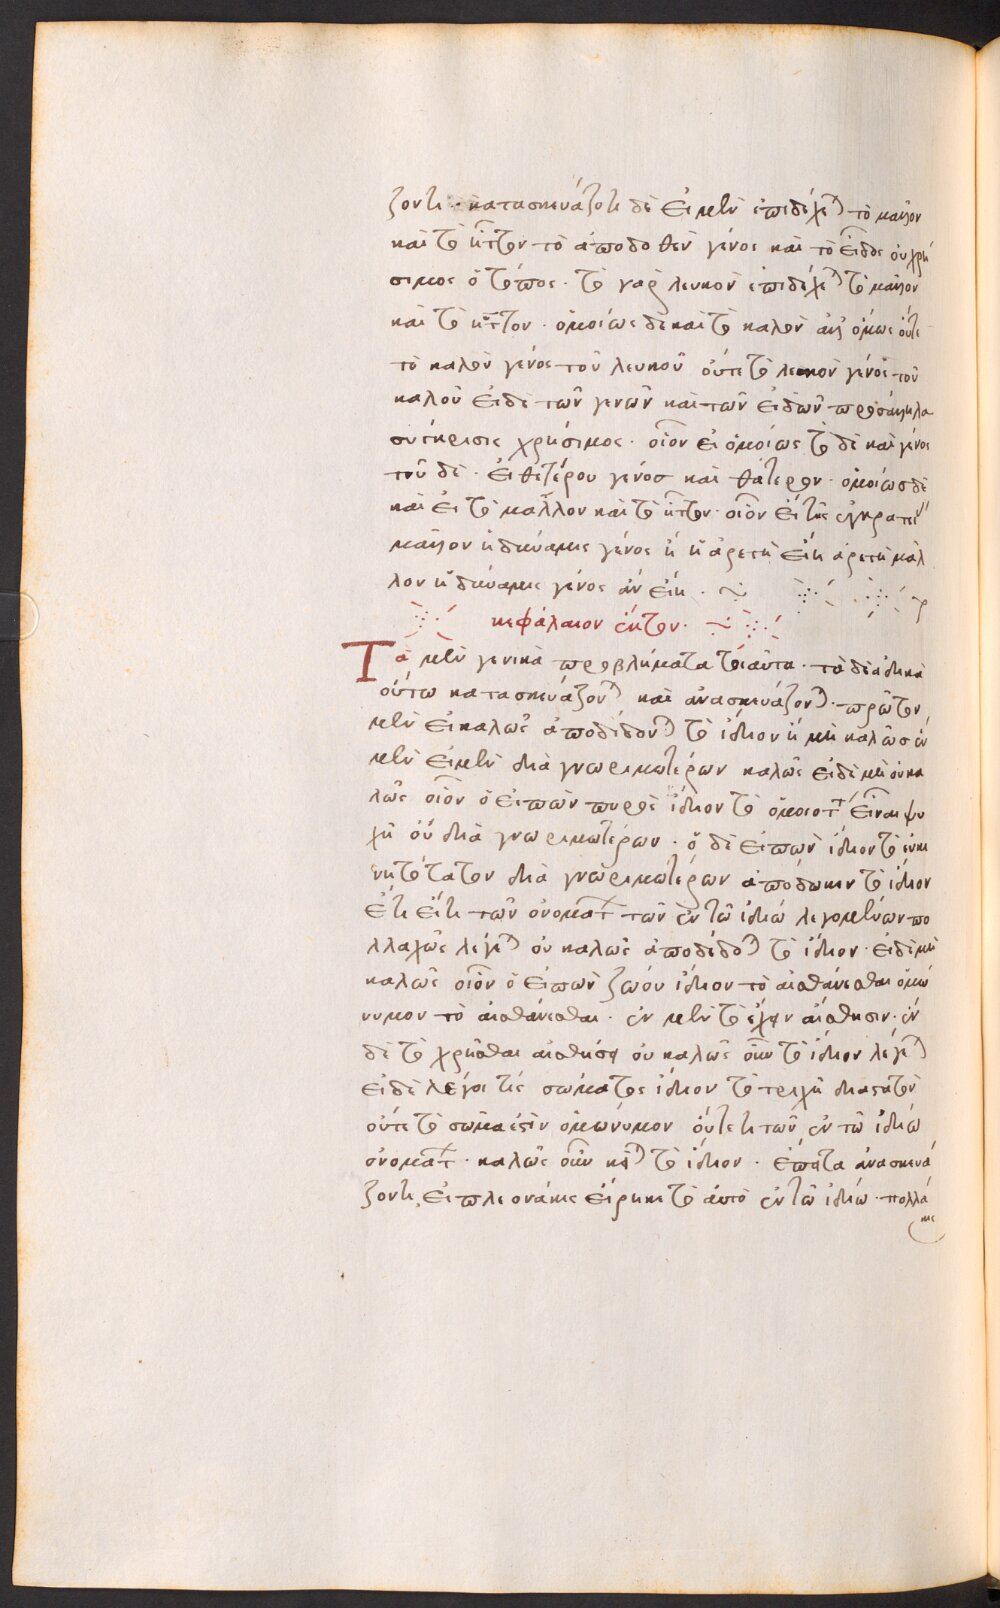 ζοντι· κατασκευάζοντι δὲ εἰ μὲν ἐπιδέχε) τὸ μᾶλλον
καὶ τὸ ἧττον τὸ ἀποδοθὲν γένος καὶ τὸ εἶδος οὐ χρή
σιμος ὁ τόπος· τὸ γὰρ λευκὸν ἐπιδέχε) τὸ μᾶλλον
καὶ τὸ ἧττον· ὁμοίως δὲ καὶ τὸ καλὸν ἀλλ ὅμως οὔτε
τὸ καλὸν γένος τοῦ λευκοῦ οὔτε τὸ λευκὸν γένος τοῦ
καλοῦ εἰ δὲ τῶν γενῶν καὶ τῶν εἰδῶν πρὸς ἄλληλα
σύγκρισις χρήσιμος· οἷον εἰ ὁμοίως τὸ δὲ καὶ γένος
τοῦ δὲ· εἰ θἀτέρου γένος καὶ θάτερον· ὁμοίως δὲ
καὶ εἰ τὸ μᾶλλον καὶ τὸ ἧττον· οἷον εἰ τῆς ἐγκρατεί
μᾶλλον ἡ δύναμις γένος ἢ ἡ ἀρετὴ εἴη ἀρετὴ μᾶλ
λον ἡ δύναμις γένος ἂν εἴη·
κεφάλαιον ἕκτον·
Τὰ μὲν γενικὰ προβλήματα τοιαῦτα· τὰ δὲ ἰδικὰ
οὕτω κατασκευάζον) καὶ ἀνασκευάζον)· πρῶτον
μὲν εἰ καλῶς ἀποδίδον) τὸ ἴδιον ἢ μὴ καλῶς ἐν
μὲν εἰ μὲν διὰ γνωριμωτέρων καλῶς εἰ δὲ μὴ οὐ κα
λῶς οἷον ὁ εἰπὼν πυρὸς ἴδιον τὸ ὁμοιότ εἶναι ψυ
χῇ οὐ διὰ γνωριμωτέρων· ὁ δὲ εἰπὼν ἴδιον τὸ εὐκι
νητότατον διὰ γνωριμωτέρων ἀπόδωκεν τὸ ἴδιον
ἔτι εἴ τι τῶν ὀνομάτ τῶν ἐν τῷ ἰδίῳ λεγομένων πο
λλαχῶς λέγε) οὐ καλῶς ἀποδίδο) τὸ ἴδιον· εἰ δὲ μὴ
καλῶς οἷον ὁ εἰπὼν ζώου ἴδιον τὸ αἰσθάνεσθαι ὁμώ
νυμον τὸ αἰσθάνεσθαι· ἐν μὲν τὸ ἔχειν αἴσθησιν· ἐν
δὲ τὸ χρῆσθαι αἰσθήσει οὐ καλῶς οὖν τὸ ἴδιον λέγε)
εἰ δὲ λέγοι τίς σώματος ἴδιον τὸ τριχῇ διαστατὸν
οὔτε τὸ σῶμα ἐστὶν ὁμώνυμον οὔτε τι τῶν ἐν τῷ ἰδίῳ
ὀνομάτ· καλῶς οὖν κεῖ) τὸ ἴδιον· ἔπειτα ἀνασκευά
ζοντι, εἰ πλεονάκις εἴρηκε τὸ αὐτὸ ἐν τῷ ἰδίῳ· πολλά
κις